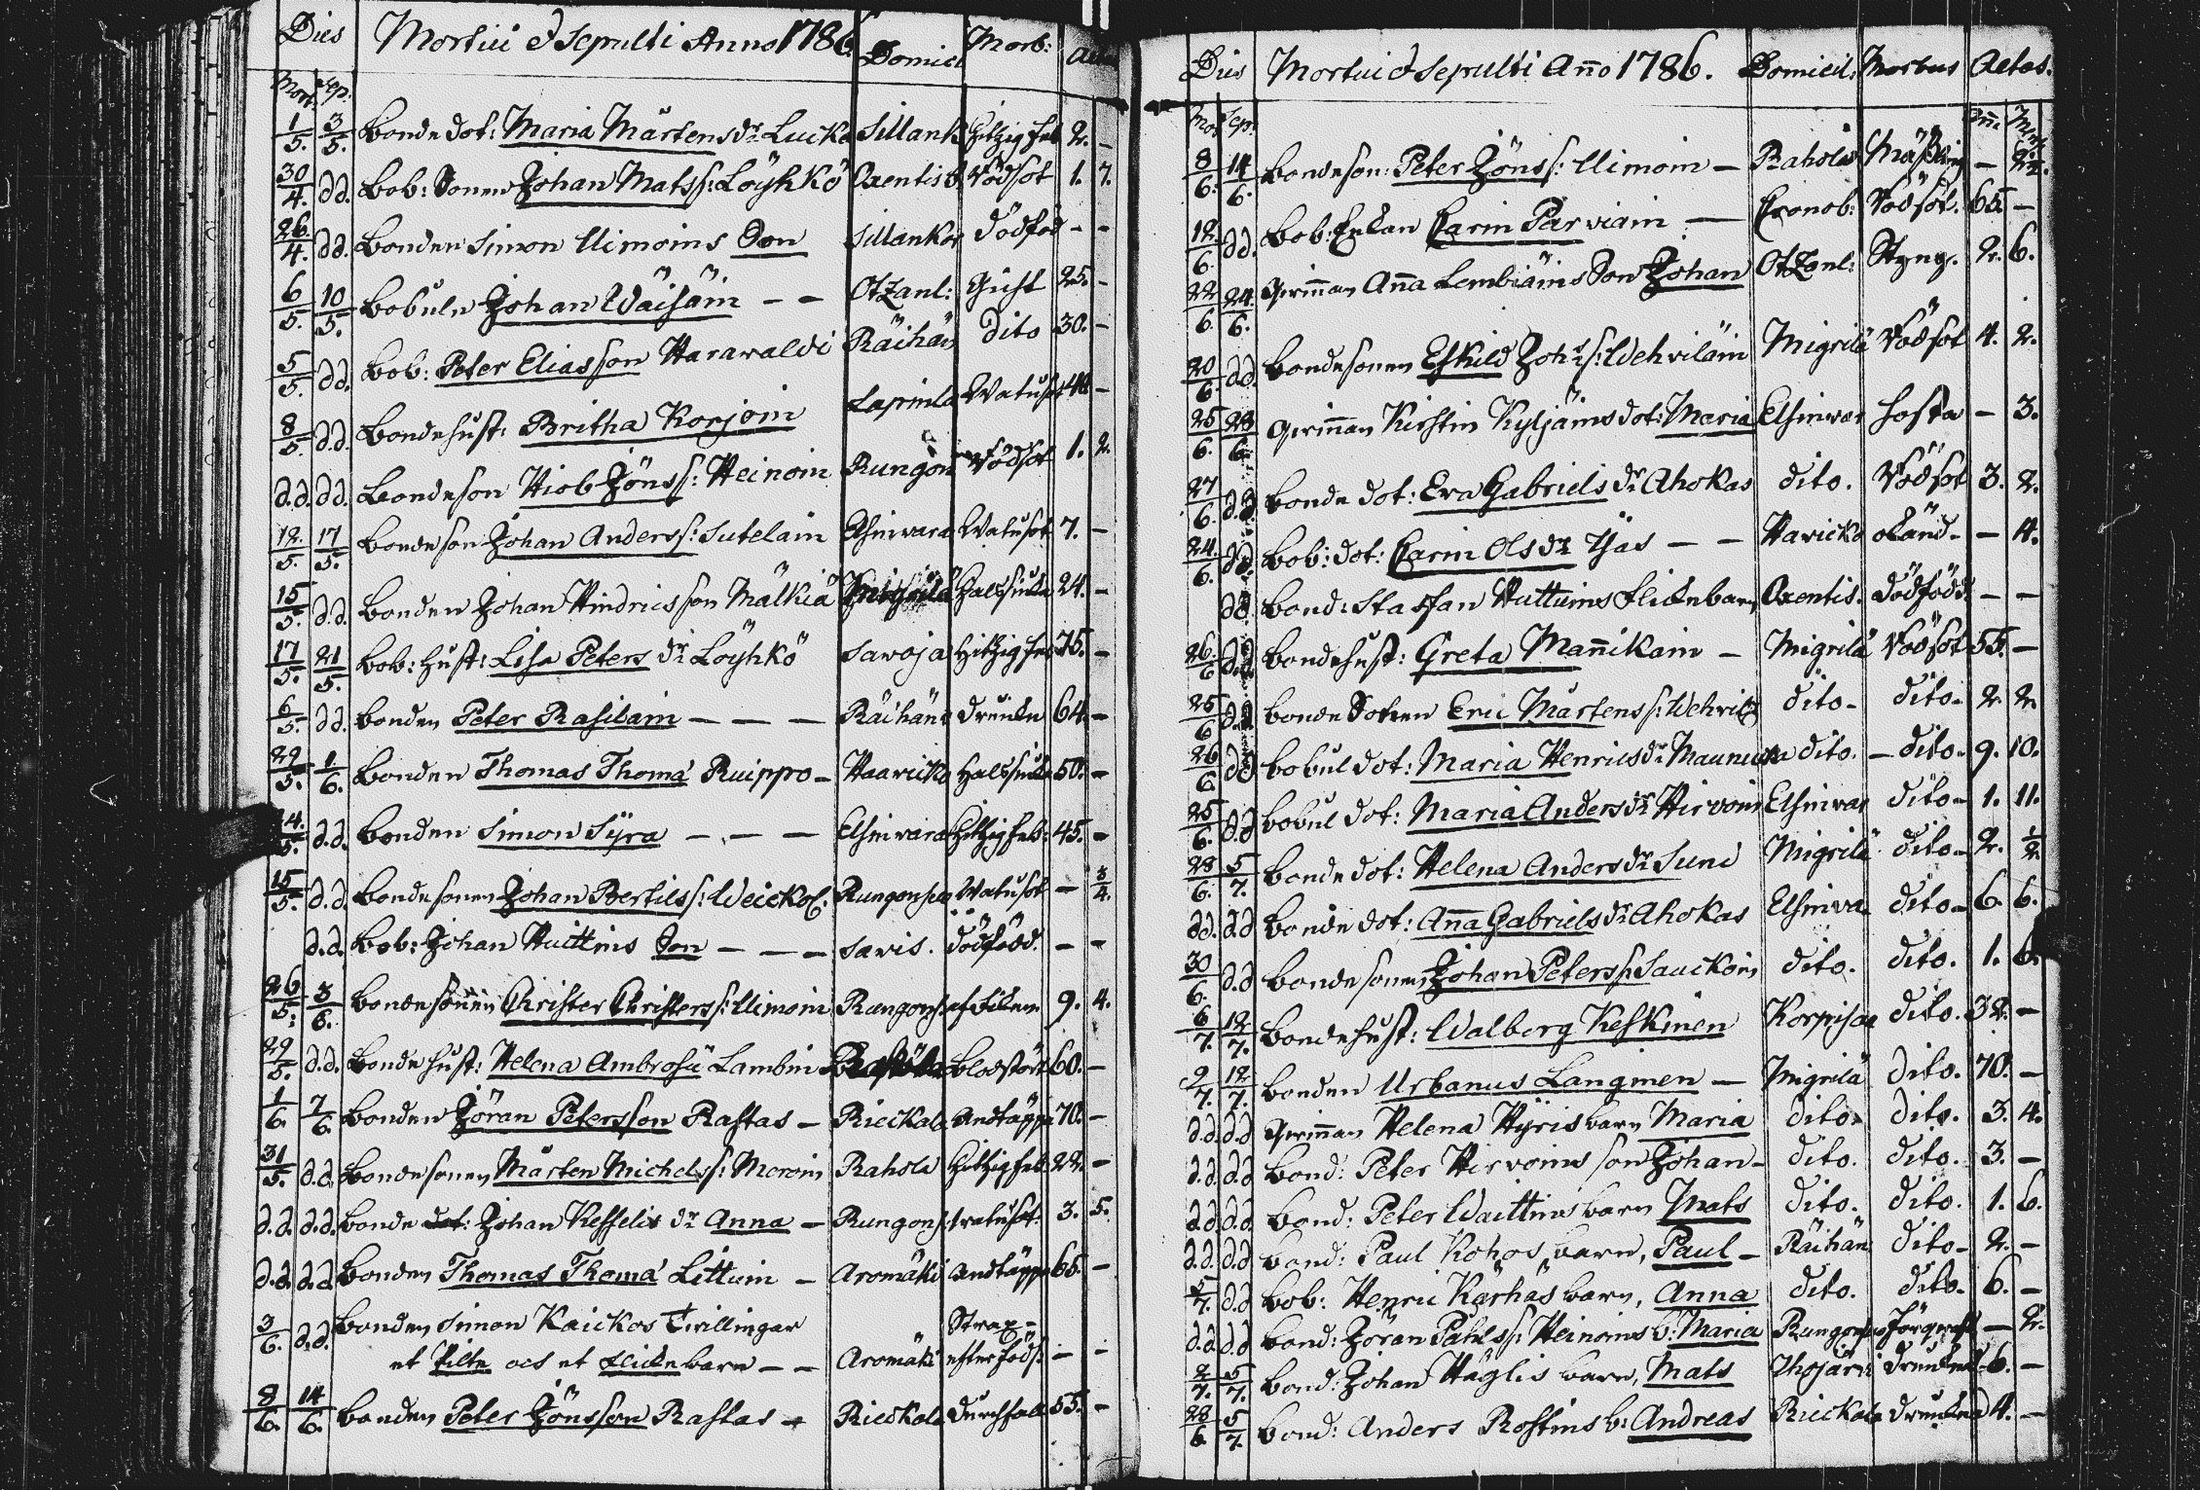 Dies Mortui & Sepulti Anno 1786. Domici Morb: Aetas
Mort. Sep.
1/5. 3/5. Bonde dot: Maria Mårtensdr Lucka Sillank Hitzig feb 2. -
30/4. dd. Bob: Sonen Johan Matss: Löyhkö Oxentis Rödsot 1. 7.
26/4. dd. Bonden Simon Uimoins Son Sillankor dödföd - -
6/5. 10/5. Bobuln Johan Wäisäin - - Otzanl: Gicht 25. -
5/5. dd. Bob: Peter Eliasson Harawaldi Räihän dito 30. -
8/5. d.d. Bondehust: Britha Korjoin Lapinla Watusot -
d.d. dd. Bondeson Hiob Jönss: Heinoin Rungon Rödsot 1. 2.
12/5. 17/5. Bondeson Johan Anderss: Sutelain Elsinvara Watusot 7. -
15/5. d.d. Bonden Johan Hindricsson Mälkiä Halssiuka 24. -
17/5. 21/5. Bob: Hust: Lisa Petersdr Löyhkö Savoja Hitzig feb 75. -
6/5. dd. Bonden Peter Rasilain - - - Räihäns Drunkn 64. -
29/5. 1/6. Bonden Thomas Thomæ Ruippo - Haaricko Halssiuka 50. -
24/5. d.d. Bonden Simon Syra - - - Elsinvara Hitzig feb: 45. -
15/5. d.d. Bondesonen Johan Bertilss: Weickol. Rungonsa Watusot - 3/4.
d.d. Bob: Johan Huittins Son - - - Saris. dödföd. - -
26/5. 3/6. Bondesonen Christer Christerss: Uimoin Rungons 9. 4.
29/5. d.d. Bonde hust: Helena Ambrosii Lambin Blodstört 60. -
1/6. 7/6. Bonden Jöran Petersson Rastas - Rieckala Andtäppa 70. -
31/5. d.d. Bondesonen Mårten Michelss: Meroin Rahola Hitzig feb. 22. -
d.d. d.d. Bonde dot: Johan Kesselis dr Anna - Rungons. Watusot. 3. 5.
d.d. d.d. Bonden Thomas Thomæ Littuin - Aromäki Andtäppa 65. -
3/6. d.d. Bonden Simon Kaickos Tvillingar Strax-
et Pilte och et Flickebarn - - Aromäki efter föds: - -
8/6. 14/6. Bonden Peter Jönsson Rastas - Rieckala Durchfall 55. -
Dies Mortui & Sepulti Año 1786. Domicil: Morbus Aetas.
Mor. Sep. Añi
8/6. 14/6. Bondeson: Peter Jönss: Uimoin - Rahola Mäßling -
12/6. dd. Bob: Enkan Carin Parviain - Cronob: Rödsot. 65. -
22/6. 24/6. Qvinnan Aña Lembiäins Son Johan Otzanl: Styng. 2. 6.
20/6. dd. Bondesonen Eskild Johs: Wehviläin Migrilä Rödsot 4. 2.
25/6. 28/6. Qvinnan Kirstin Kyljäins dot: Maria Elsinvar hosta - 3.
27/6. d.d. Bonde dot: Eva Gabrielsdr Ahokas dito. Rödsot 3. 2.
24/6. dd. Bob: dot: Carin Olsdr Ijäs - - Haricko okänd - - 4.
dd. Bond: Staffan Huttuins Flickebarn Oxentis. dödföd. - -
26/6 d.d. Bondehust: Greta Mañikain - Migrilä Rödsot 55. -
25/6 d.d. Bonde Sonen Eric Mårtenss: Wehvil dito - dito - 2. 2.
26/6. dd Bobul dot: Maria Henricsdr Maunuxa dito. - dito - 9. 10.
25/6. d.d Bobul dot: Maria Andersdr Hirvoin Elsinvar dito - 1. 11.
28/6. 5/7. Bonde dot: Helena Andersdr Suni Migrilä dito - 2. 1/2
dd. d.d Bonde dot: Aña Gabrielsdr Ahokas Elsinva dito - 6. 6.
30/6. d.d Bonde sonen Johan Peterss: Sauckoin dito. dito. 1. 6.
6/7. 12/7. Bondehust: Walborg Keskinen Korpisaa dito. 32. -
9/7. 12/7. Bonden Urbanus Langinen - Migrilä dito. 70. -
d.d. d.d Qvinnan Helena Hyris barn Maria dito. dito. 3. 4.
d.d. d.d Bond: Peter Hirvoins son Johan - dito. dito. 3. -
d.d. d.d. Bond: Peter Waittins barn Mats dito. dito. 1. 6.
d.d. d.d Bond: Paul Kohos barn, Paul - Räihän dito - 2. -
5/7. d.d Bob: Henric Kärhäs barn, Anna dito. dito. 6. -
d.d. d.d Bond: Jöran Påhlss: Heinoins b: Maria Rungons - 2.
2/7. 5/7. Bond: Johan Häglis barn, Mats Ihojärvi Drunknad 6. -
28/6. 5/7. Bond: Anders Rostins b: Andreas Rieckala Drunknad 4. -